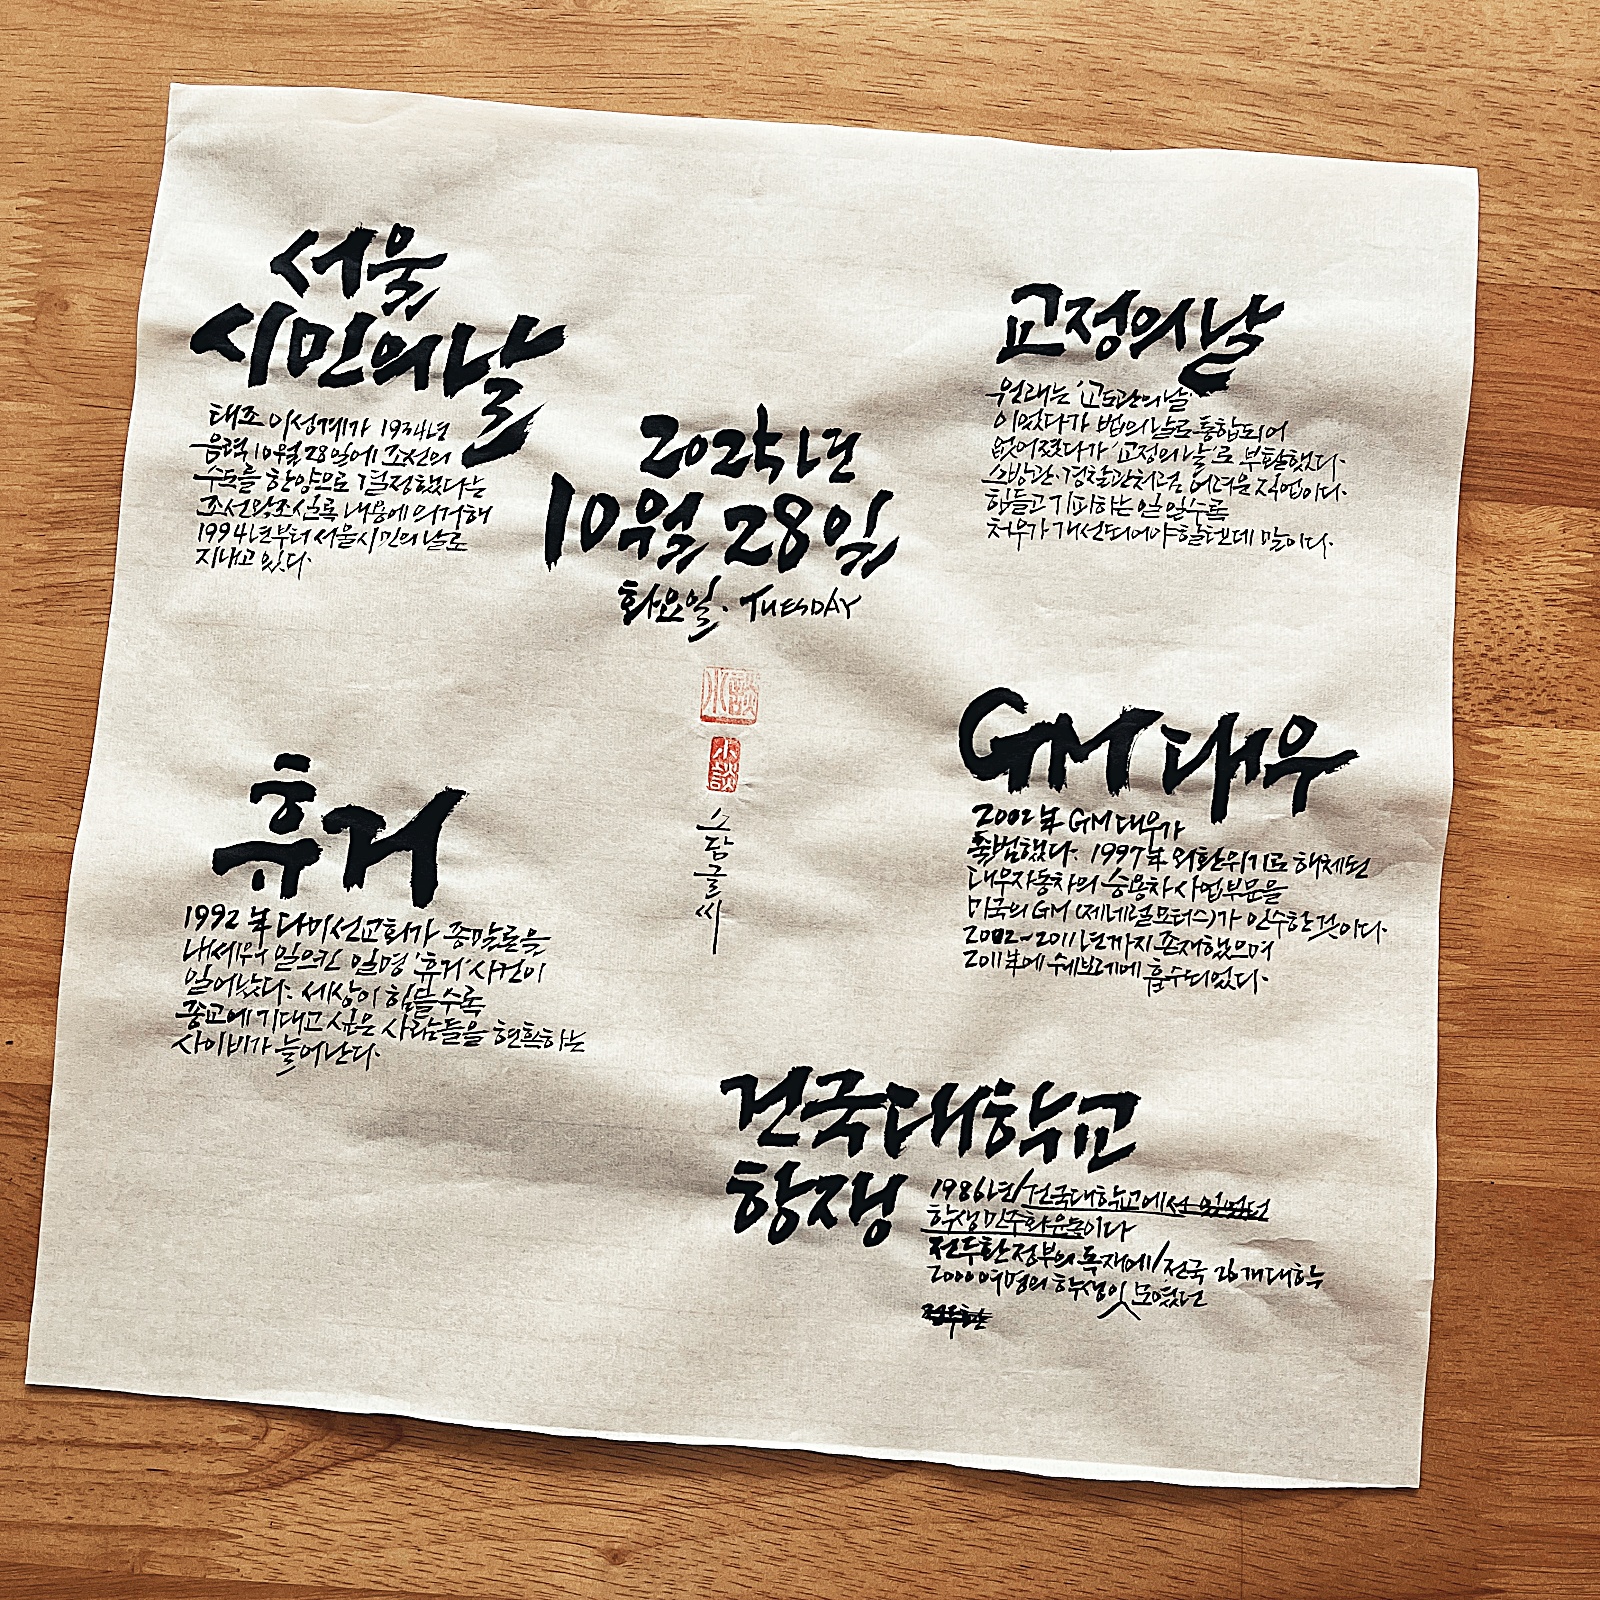 서울
시민의날
태조 이성계가 1934년
음력 10월 28일에 조선의
수도를 한양으로 결정했다는
조선왕조실록 내용에 의거해
1994년부터 서울시민의 날로
지내고 있다.
2025년
10월 28일
화요일. TUESDAY
小談
小談
소담글씨
교정의날
원래는 '교도관의날'
이었다가 법의날로 통합되어
없어졌다가 '교정의날'로 부활했다.
소방관.경찰관처럼 어려운 직업이다.
힘들고 기피하는 일일수록
처우가 개선되어야할텐데 말이다.
휴거
1992年 다미선교회가 종말론을
내세워 일으킨 일명 '휴거' 사건이
일어났다. 세상이 힘들수록
종교에 기대고 싶은 사람들을 현혹하는
사이비가 늘어난다.
GM대우
2002年 GM대우가
출범했다. 1997年 외환위기로 해체된
대우자동차의 승용차 사업부문을
미국의 GM (제네럴모터스)가 인수한 것이다.
2002~2011년까지 존재했으며
2011年에 쉐보레에 흡수되었다.
건국대학교
항쟁
1986년/건국대학교에서 있었던
학생민주화운동이다
전두환정부의 독재에/전국 26개대학
2000여명의 학생이 모였던